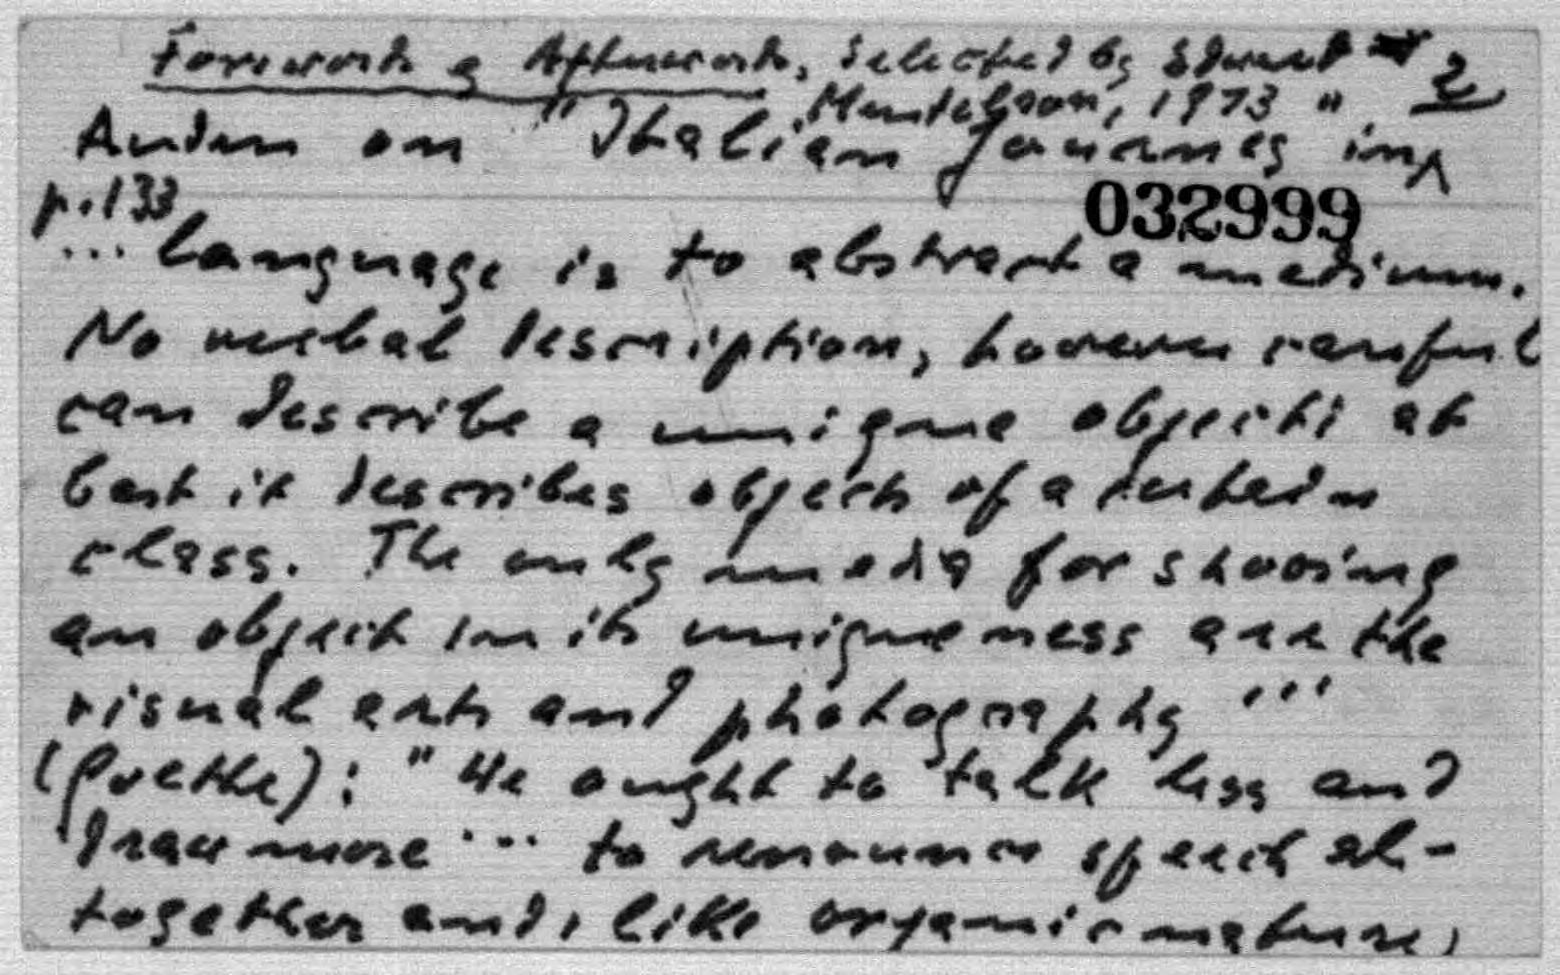 Forewords & Afterwords, selected by Edward 2
Mendelson, 1973 "
Auden on "Italian Journey in
p. 133
032999
... language is to abstract a medium.
No verbal description, however careful
can describe a unique object; at
best it describes objects of a certain
class. The only media for showing
an object in its uniqueness are the
visual arts and photography '''
(Goethe): "We ought to talk less and
draw more ... to renounce speech al-
together and, like organic nature,